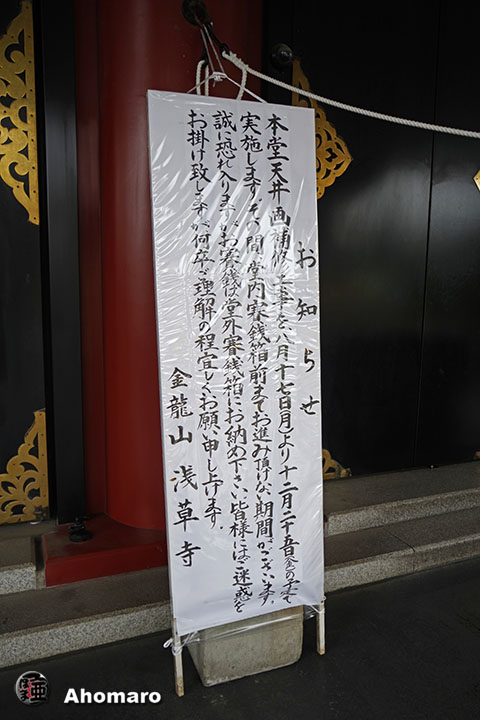 お知らせ
本堂天井画補修工事を八月十七日(月)より十二月二十五日(金)の予定で
実施します。その間、堂内賽銭箱前までお進み頂けない期間がございます。
誠に恐れ入りますがお賽銭は堂外賽銭箱にお納め下さい。皆様にはご迷惑を
お掛け致しますが何卒ご理解の程宜しくお願い申し上げます。
金龍山 浅草寺
Ahomaro